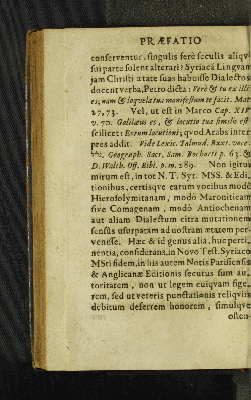 PRÆFATIO
conserventur, singulis ferè seculis aliqu
sui parte solent alterari? Syriacâ Lingvam
jam Christi ætate suas habuisse Dialectos
docent verba, Petro dicta: Verè & tu ex illi
es; nam & loqvela tua manifestum te facit. Mat
27, 73. Vel, ut est in Marco Cap. XIV
v. 70. Galilæus es, & locutio tua similis est
scilicet: Eorum locutioni; qvod Arabs inter
pres addit. Vide Lexic. Talmud. Buxt. voce
Geograph. Sacr. Sam. Bocharti p. 63. &
D. Walth. Off. Bibl. p. m. 289. Non igitur
mirum est, in tot N. T. Syr. MSS. & Edi
tionibus, certisqve earum vocibus modò
Hierosolymitanam, modò Maroniticam
sive Comagenam, modò Antiochenam
aut aliam Dialectum citra mutationem
sensûs usurpatam ad nostram ætatem per-
venisse. Hæc & id genus alia, huc perti
nentia, considerans, in Novo Test. Syriaco
MSti fidem, in his autem Notis Parisiensis
& Anglicanæ Editionis secutus sum au
toritatem, non ut legem cuiqvam fige
rem, sed ut veteris punctationis reliqviis
debitum deferrem honorem, simulqve
osten-